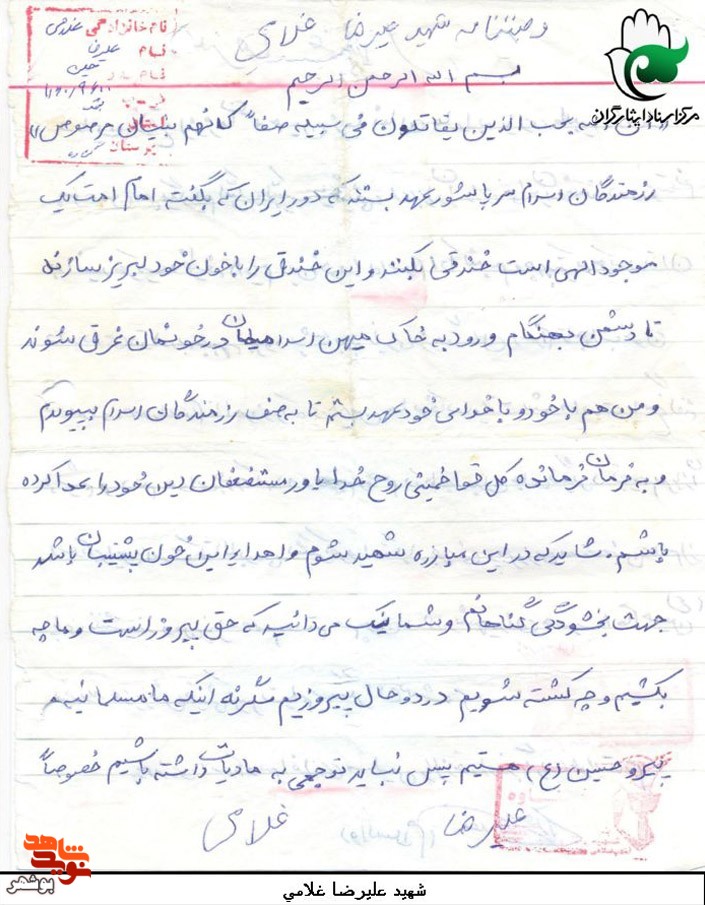 وصیتنامه شهید علیرضا غلامی
بسم الله الرحمن الرحیم
نام خانوادگی غلامی
نام علیرضا
نام پدر
مرکز اسناد ایثارگران
ان الله یحب الذین یقاتلون فی سبیله صفاً کانهم بنیان مرصوص»
رزمندگان اسلام سرپا شور عهد بستند که دور ایران که بگفته امام امت یک
موجود الهی است خندقی بکنند و این خندق را با خون خود لبریز سازند
تا دشمن بهنگام ورود به خاک میهن اسلامیمان در خونمان غرق شوند
و من هم با خود و با خدای خود عهد بستم تا به صف رزمندگان اسلام بپیوندم
و به فرمان فرمانده کل قوا خمینی روح خدا یاور مستضعفان دین خود را ادا کرده
باشم. شاید که در این مبارزه شهید شوم و اهدا این خون پشتیبان باشد
جهت بخشودگی گناهانم و شما نیک می‌دانید که حق پیروز است و ما چه
بکشیم و چه کشته شویم در دو حال پیروزیم مگر نه اینکه ما مسلمانیم
پیرو حسین (ع) هستیم پس نباید توجهی به مادیات داشته باشیم خصوصاً
علیرضا غلامی
نوید شاهد
بوشهر
شهید علیرضا غلامي